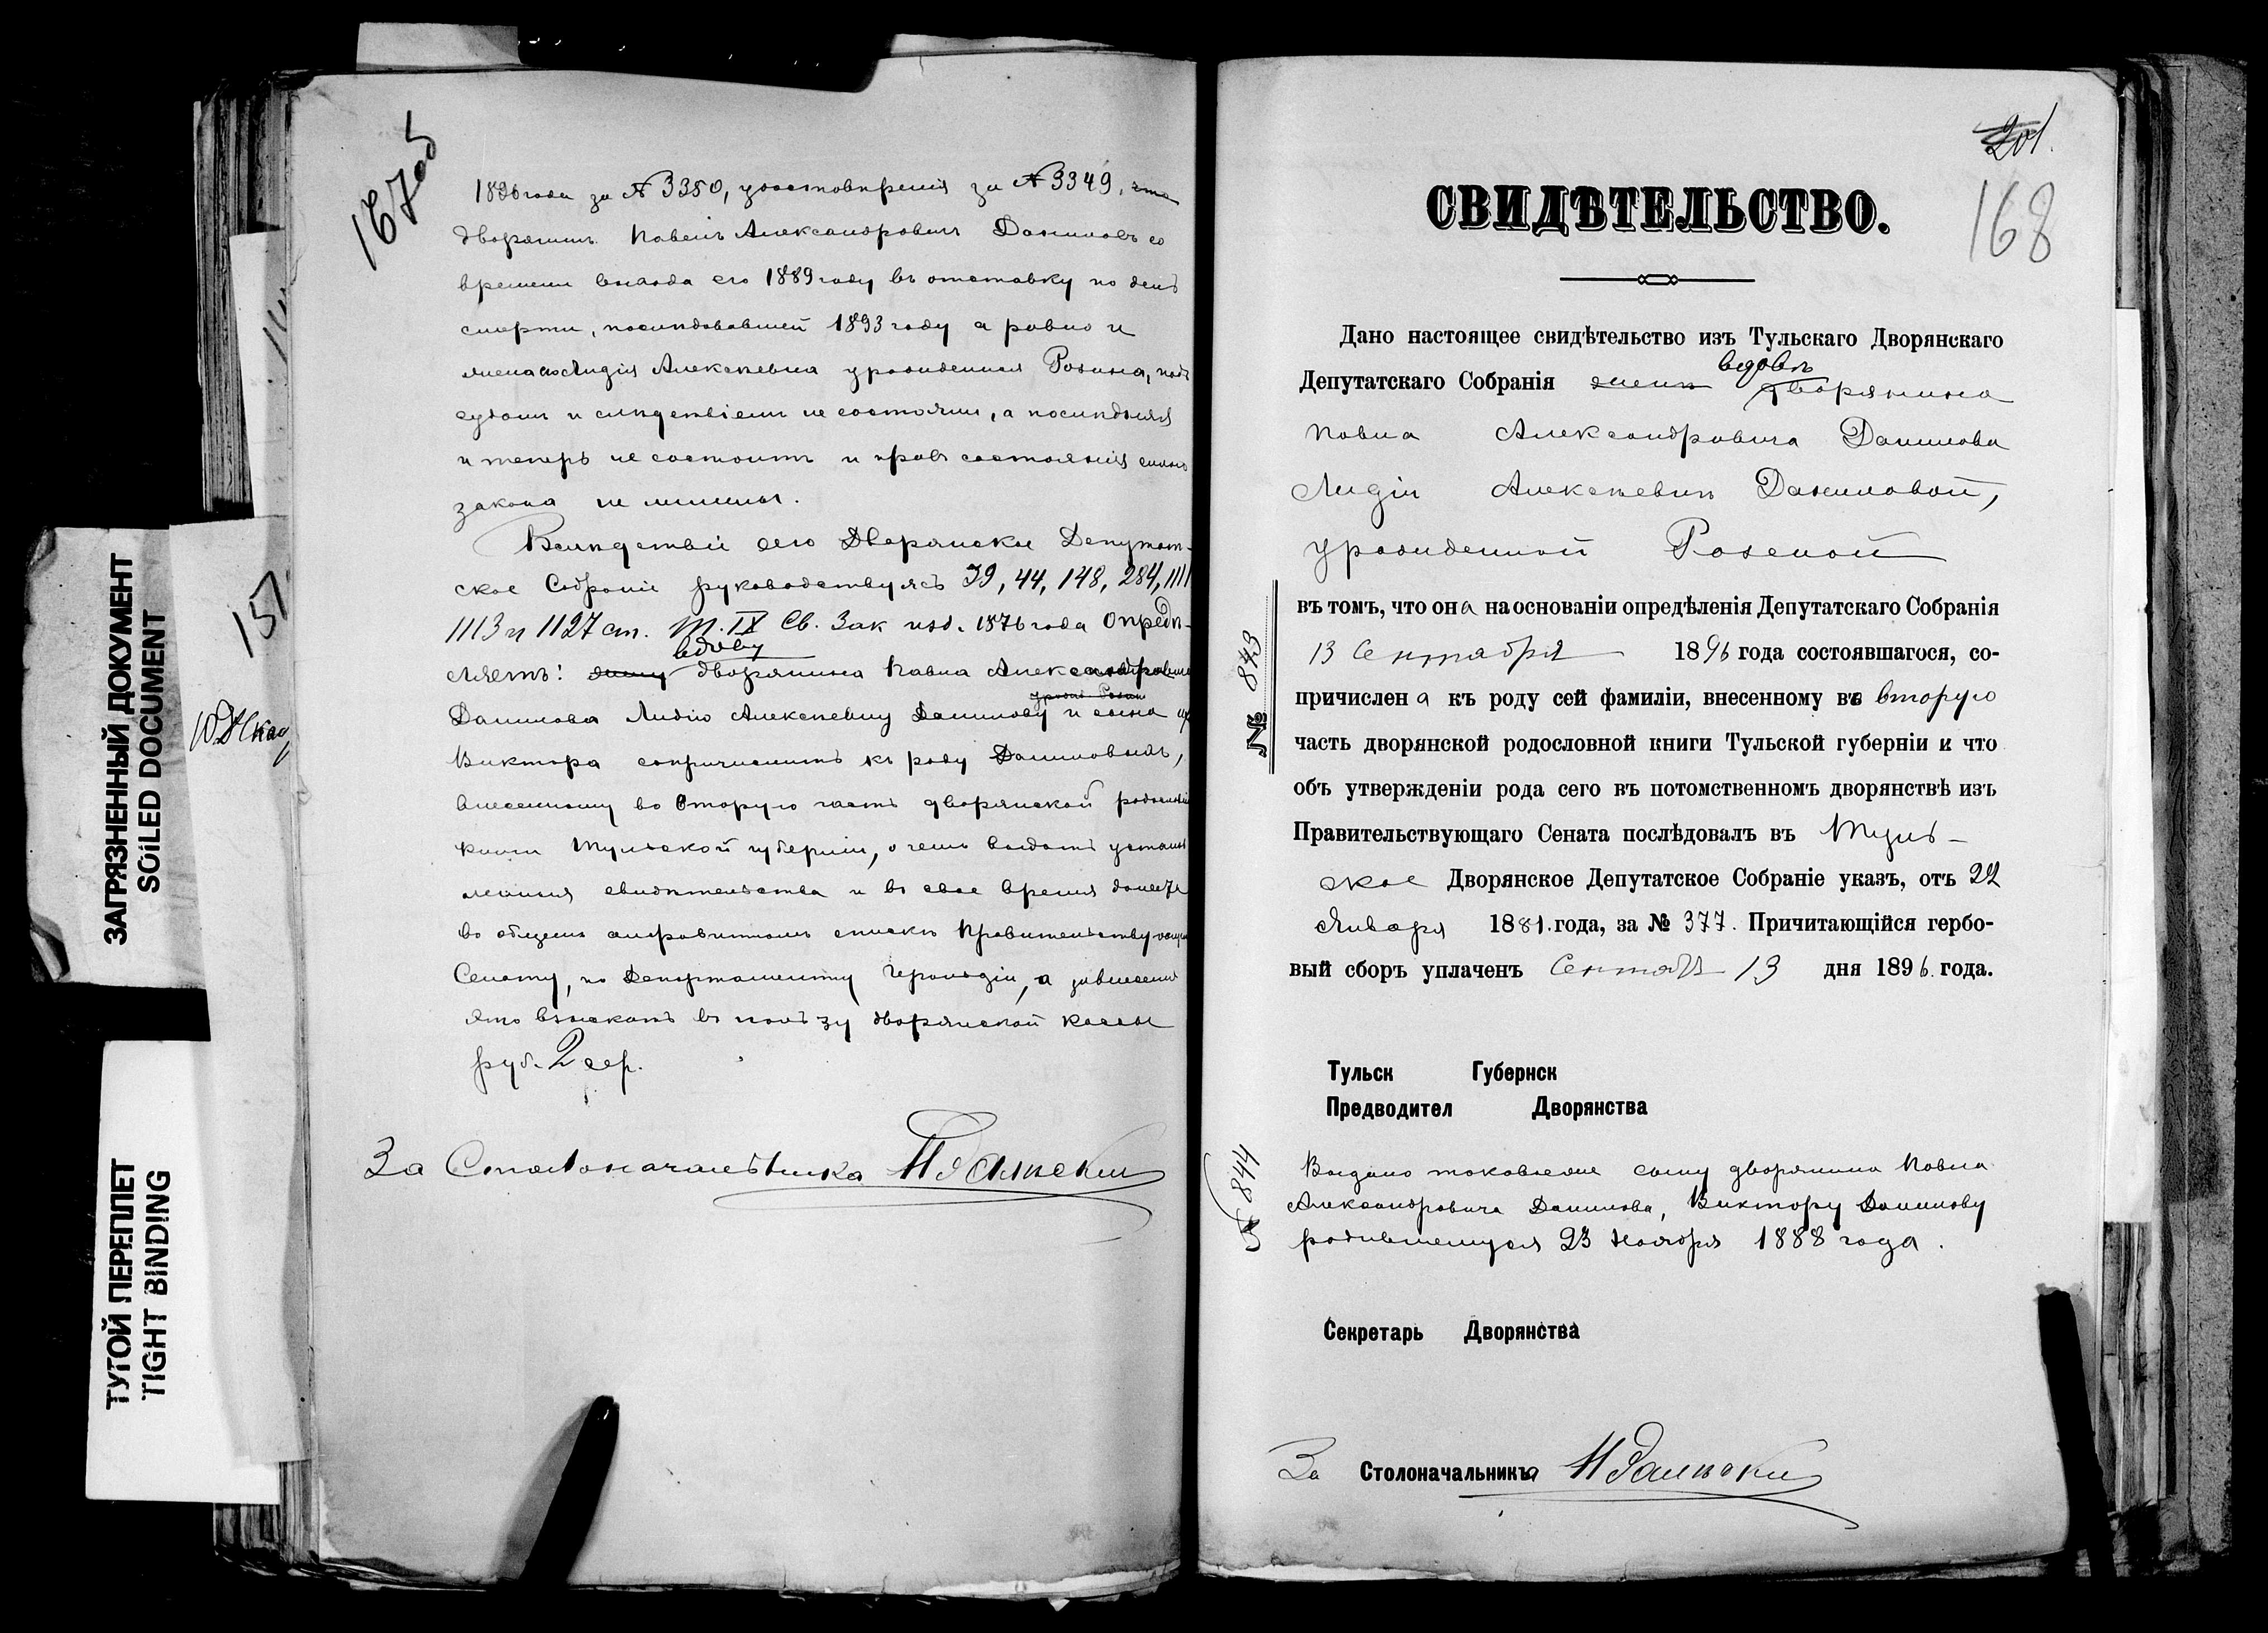 167 об
1896 года за № 3350, удостовѣренія за № 3349, что
дворянинъ Павелъ Александровичъ Даниловъ со
времени выхода его 1889 году въ отставку по день
смерти, послѣдовавшей 1893 году а равно и
жена его Лидія Алексѣевна урожденная Розина, подъ
судомъ и слѣдствіемъ не состояли, а послѣдняя
и теперь не состоитъ и правъ состоянія силою
закона не лишены.
Вслѣдствіе сего Дворянское Депутат-
ское Собраніе руководствуясь 39, 44, 148, 284, 1111
1113 и 1127 ст. Т. IX Св. Зак. изд. 1876 года Опредѣ-
вдову
ляетъ: жену дворянина Павла Александровича
урожд. Розин
Данилова Лидію Алексѣевну Данилову и сына их
Виктора сопричислить къ роду Даниловыхъ,
внесенному во вторую часть дворянской родословной
книги Тульской губерніи, о чемъ выдать установ
ленныя свидѣтельства и въ свое время донести
во общемъ алфавитномъ спискѣ Правительствующему
Сенату, по Департаменту Герольдіи, а за внесеніе
это взыскать въ пользу дворянской кассы
руб. 2 сер.
За Столоначальника
201.
168
СВИДѢТЕЛЬСТВО.
Дано настоящее свидѣтельство изъ Тульскаго Дворянскаго
вдовѣ
Депутатскаго Собранія женѣ дворянина
Павла Александровича Данилова
Лидіи Алексѣевнѣ Даниловой,
урожденной Розиной
въ томъ, что она на основаніи опредѣленія Депутатскаго Собранія
13 Сентября 1896 года состоявшагося, со-
причислена къ роду сей фамиліи, внесенному въ вторую
часть дворянской родословной книги Тульской губерніи и что
объ утвержденіи рода сего въ потомственномъ дворянствѣ изъ
Правительствующаго Сената послѣдовалъ въ Туль-
ское Дворянское Депутатское Собраніе указъ, отъ 22
Января 1881. года, за № 377. Причитающійся гербо-
вый сборъ уплаченъ Сентяб 13 дня 1896. года.
№ 843
Тульск Губернск
Предводител Дворянства
№ 844
Выдано таковое же сыну дворянина Павла
Александровича Данилова, Виктору Данилову
родившемуся 23 Ноября 1888 года.
Секретарь Дворянства
За Столоначальника
ЗАГРЯЗНЕННЫЙ ДОКУМЕНТ
SOILED DOCUMENT
ТУГОЙ ПЕРЕПЛЕТ
TIGHT BINDING
151